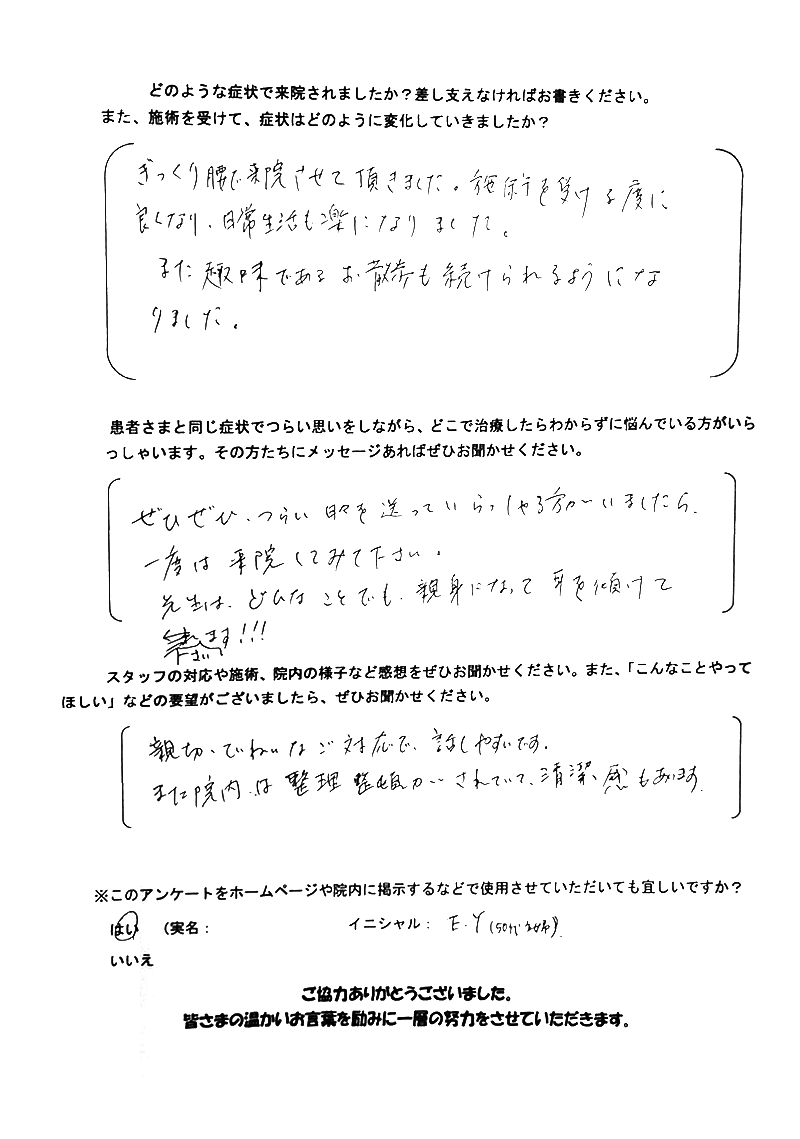 どのような症状で来院されましたか？差し支えなければお書きください。
また、施術を受けて、症状はどのように変化していきましたか？
ぎっくり腰で来院させて頂きました。施術を受ける度に
良くなり、日常生活も楽になりました。
また趣味であるお散歩も続けられるようにな
りました。
患者さまと同じ症状でつらい思いをしながら、どこで治療したらわからずに悩んでいる方がいら
っしゃいます。その方たちにメッセージあればぜひお聞かせください。
ぜひぜひ、つらい日々を送っていらっしゃる方がいましたら、
一度は来院してみて下さい。
先生は、どんなことでも、親身になって耳を傾けて
ます!!!
下さい
スタッフの対応や施術、院内の様子など感想をぜひお聞かせください。また、「こんなことやって
ほしい」などの要望がございましたら、ぜひお聞かせください。
親切、ていねいなご対応で、話しやすいです。
また院内は整理整頓がされていて、清潔感もあります。
※このアンケートをホームページや院内に掲示するなどで使用させていただいても宜しいですか？
はい （実名： イニシャル： E.Y (50代 主婦)
いいえ
ご協力ありがとうございました。
皆さまの温かいお言葉を励みに一層の努力をさせていただきます。